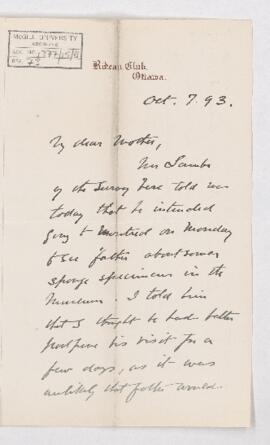 McGILL UNIVERSITY
ARCHIVES
ACC. NO.
REF.
Rideau Club,
Ottawa.
Oct. 7. 93.
My dear Mother,
Mr Lambe
of the Survey here told me
today that he intended
going to Montreal on Monday
to see father about some
sponge specimens in the
Museum. I told him
that I thought he had better
postpone his visit for a
few days, as it was
unlikely that father would